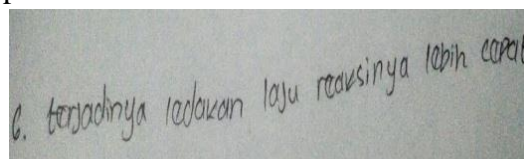 6. terjadinya ledakan laju reaksinya lebih cepat